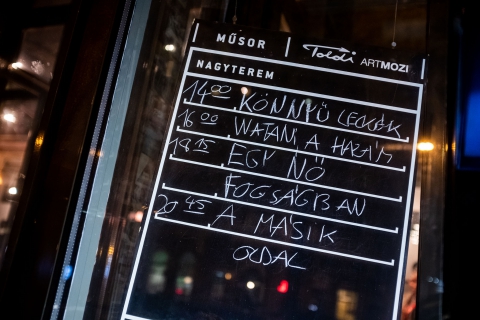 MŰSOR Toldi ARTMOZI
NAGYTEREM
14:00 KÖNNYŰ LECKÉK
16:00 WATANI, A HAZÁM
18:15 EGY NŐ
FOGSÁGBAN
20:45 A MÁSIK
OLDAL